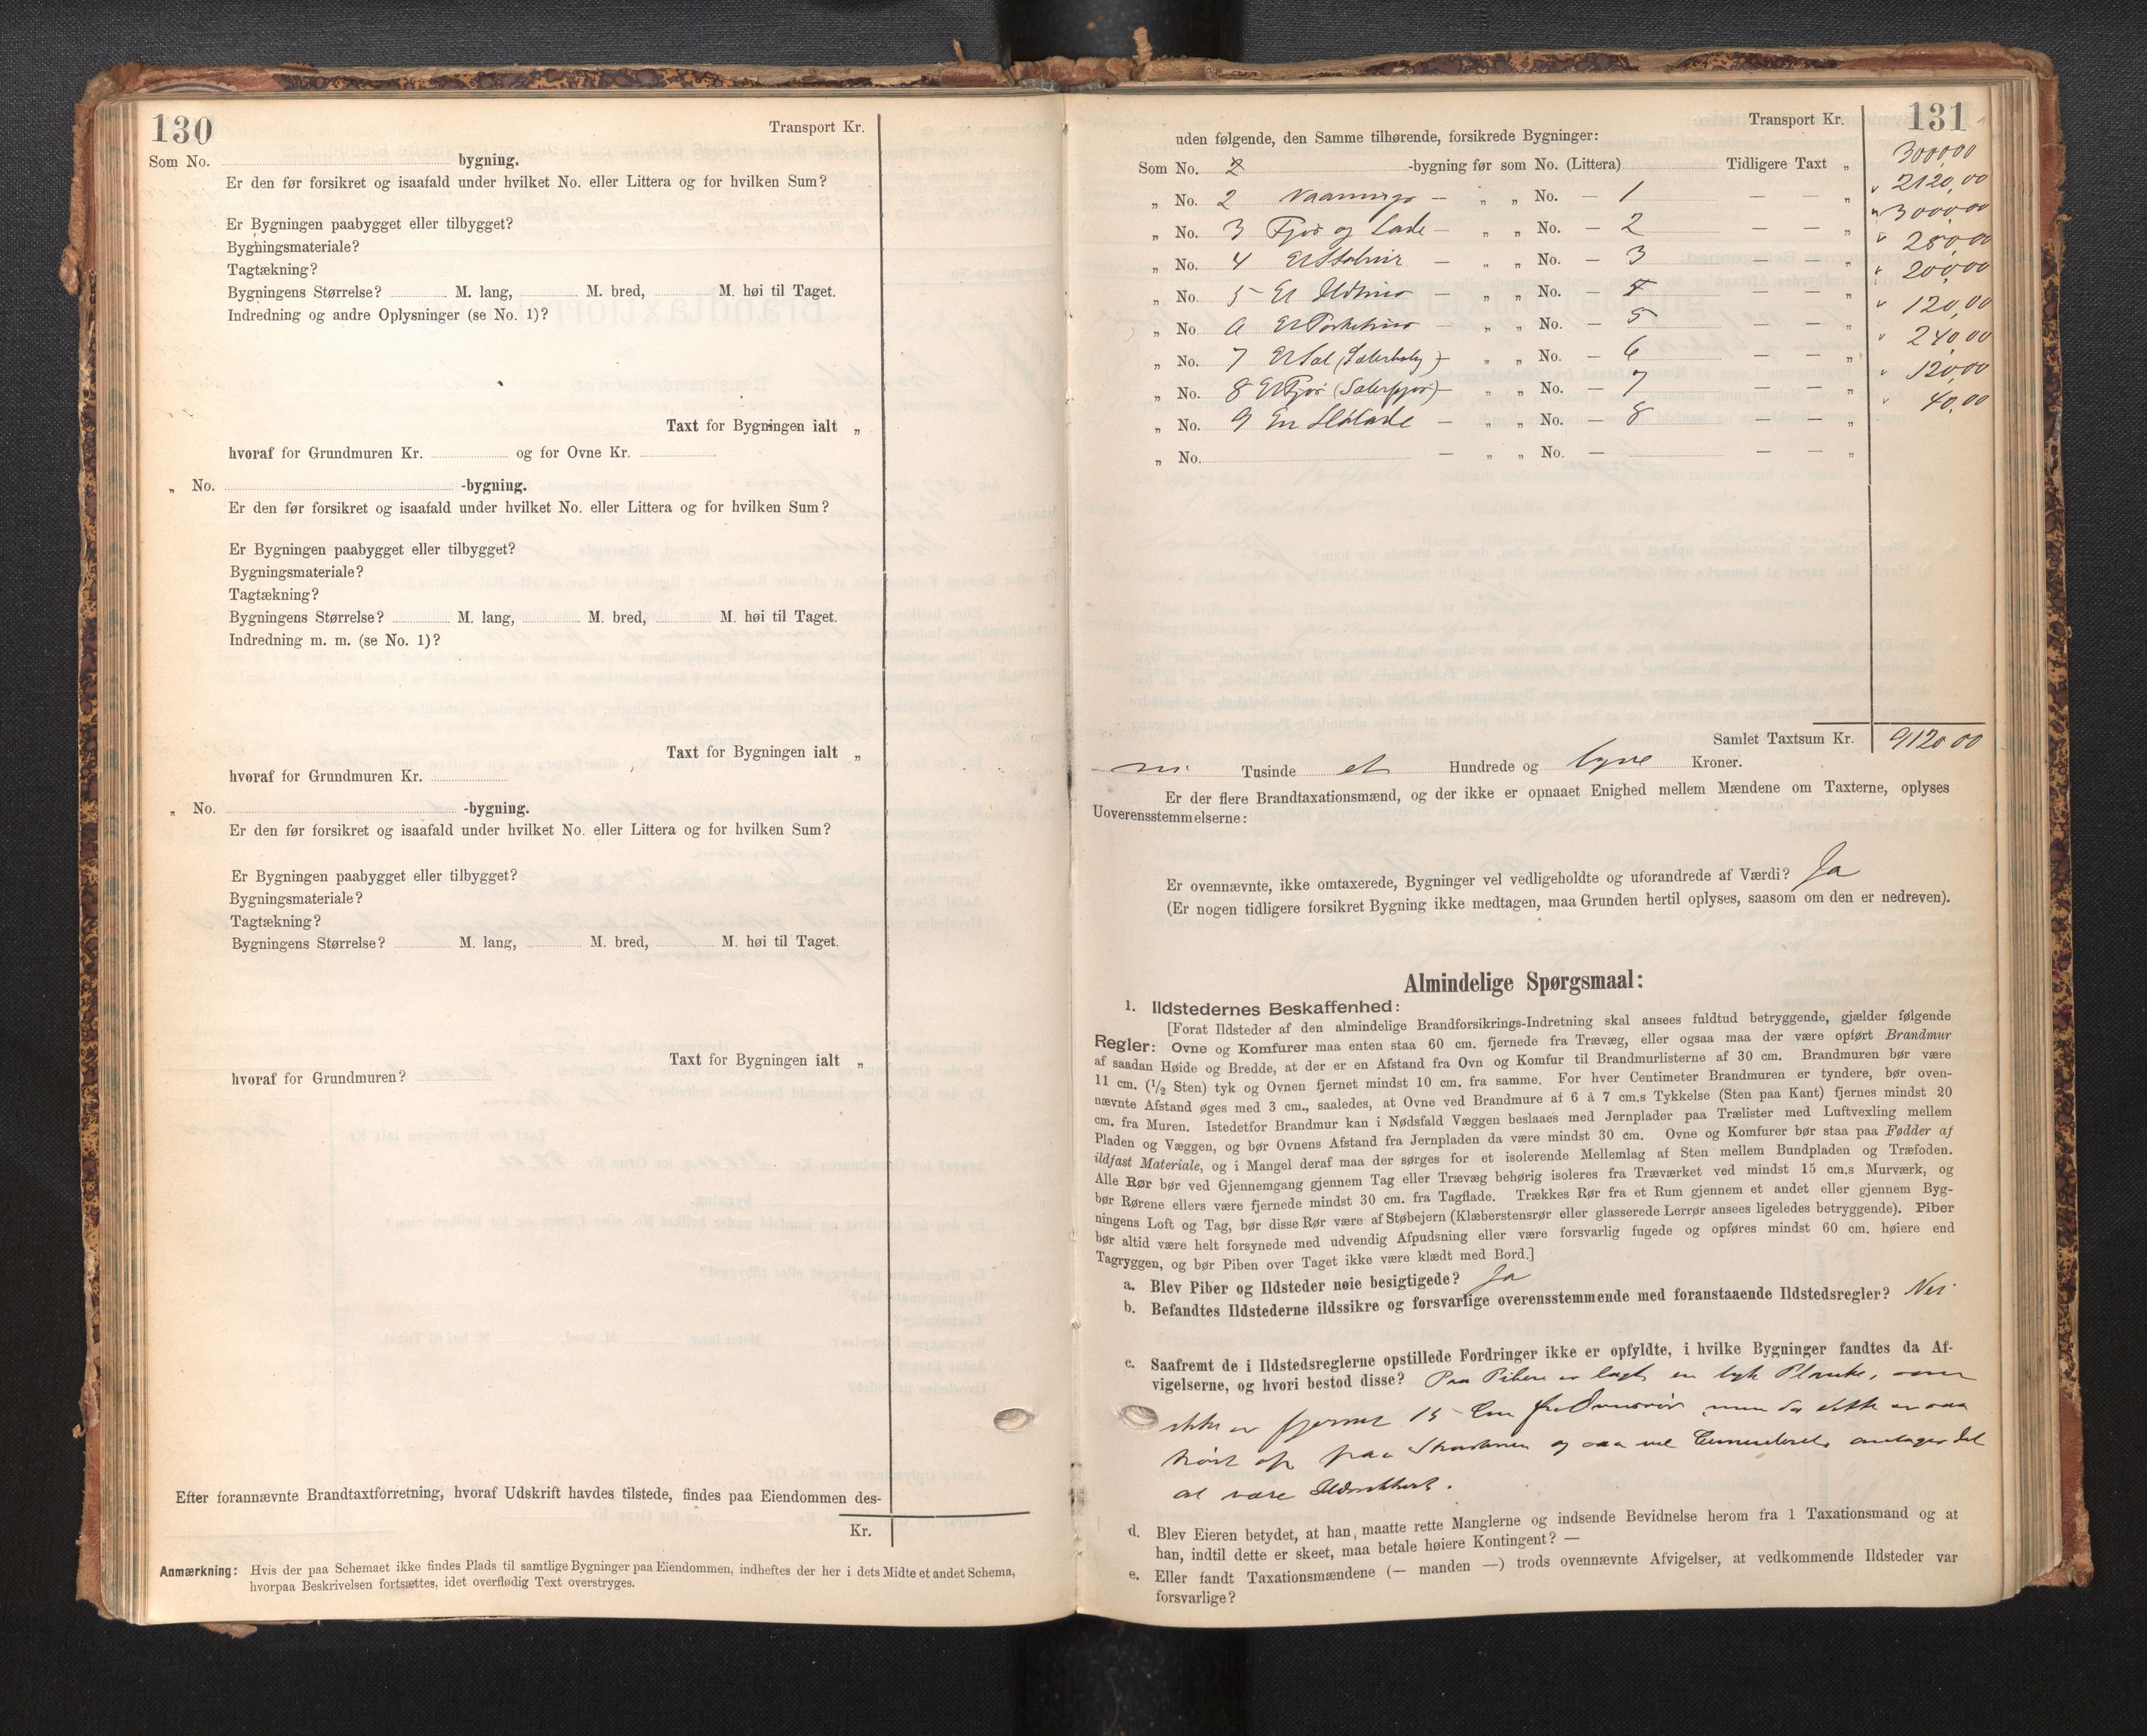 130
Transport Kr.
Som No. bygning.
Er den før forsikret og isaafald under hvilket No. eller Littera og for hvilken Sum?
Er Bygningen paabygget eller tilbygget?
Bygningsmateriale?
Tagtækning?
Bygningens Størrelse? M. lang, M. bred, M. høi til Taget.
Indredning og andre Oplysninger (se No. 1)?
Taxt for Bygningen ialt „
hvoraf for Grundmuren Kr. og for Ovne Kr.
„ No. -bygning.
Er den før forsikret og isaafald under hvilket No. eller Littera og for hvilken Sum?
Er Bygningen paabygget eller tilbygget?
Bygningsmateriale?
Tagtækning?
Bygningens Størrelse? M. lang, M. bred, M. høi til Taget.
Indredning m. m. (se No. 1)?
Taxt for Bygningen ialt „
hvoraf for Grundmuren Kr.
„ No. -bygning.
Er den før forsikret og isaafald under hvilket No. eller Littera og for hvilken Sum?
Er Bygningen paabygget eller tilbygget?
Bygningsmateriale?
Tagtækning?
Bygningens Størrelse? M. lang, M. bred, M. høi til Taget.
Taxt for Bygningen ialt „
hvoraf for Grundmuren?
Efter forannævnte Brandtaxtforretning, hvoraf Udskrift havdes tilstede, findes paa Eiendommen des-
Kr.
Anmærkning: Hvis der paa Schemaet ikke findes Plads til samtlige Bygninger paa Eiendommen, indheftes der her i dets Midte et andet Schema,
hvorpaa Beskrivelsen fortsættes, idet overflødig Text overstryges.
131
Transport Kr. 3000,00
uden følgende, den Samme tilhørende, forsikrede Bygninger:
Som No. 2 -bygning før som No. (Littera) Tidligere Taxt „
„ No. 2 Vaanings — „ „ No. — 1 — — „ 2120,00
„ No. 3 Fjøs og Lade — „ „ No. — 2 — — „ 3000,00
„ No. 4 — „ „ No. — 3 — — „ 280,00
„ No. 5 Et Ildhus — „ „ No. — 4 — — „ 200,00
„ No. 6 — „ „ No. — 5 — — „ 120,00
„ No. 7 Et Sel — „ „ No. — 6 — — „ 240,00
„ No. 8 Et Fjøs (Sæterfjøs) — „ „ No. — 7 — — „ 120,00
„ No. 9 En Hølade — „ „ No. — 8 — — „ 40,00
„ No. — „ „ No. — — — „
Samlet Taxtsum Kr. 9120 00
ni Tusinde et Hundrede og tyve Kroner.
Er der flere Brandtaxationsmænd, og der ikke er opnaaet Enighed mellem Mændene om Taxterne, oplyses
Uoverensstemmelserne:
Er ovennævnte, ikke omtaxerede, Bygninger vel vedligeholdte og uforandrede af Værdi? Ja
(Er nogen tidligere forsikret Bygning ikke medtagen, maa Grunden hertil oplyses, saasom om den er nedreven).
Almindelige Spørgsmaal:
1. Ildstedernes Beskaffenhed:
[Forat Ildsteder af den almindelige Brandforsikrings-Indretning skal ansees fuldtud betryggende, gjælder følgende
Regler: Ovne og Komfurer maa enten staa 60 cm. fjernede fra Trævæg, eller ogsaa maa der være opført Brandmur
af saadan Høide og Bredde, at der er en Afstand fra Ovn og Komfur til Brandmurlisterne af 30 cm. Brandmuren bør være
11 cm. (1/2 Sten) tyk og Ovnen fjernet mindst 10 cm. fra samme. For hver Centimeter Brandmuren er tyndere, bør oven-
nævnte Afstand øges med 3 cm., saaledes, at Ovne ved Brandmure af 6 à 7 cm.s Tykkelse (Sten paa Kant) fjernes mindst 20
cm. fra Muren. Istedetfor Brandmur kan i Nødsfald Væggen beslaaes med Jernplader paa Trælister med Luftvexling mellem
Pladen og Væggen, og bør Ovnens Afstand fra Jernpladen da være mindst 30 cm. Ovne og Komfurer bør staa paa Fødder af
ildfast Materiale, og i Mangel deraf maa der sørges for et isolerende Mellemlag af Sten mellem Bundpladen og Træfoden.
Alle Rør bør ved Gjennemgang gjennem Tag eller Trævæg behørig isoleres fra Træværket ved mindst 15 cm.s Murværk, og
bør Rørene ellers være fjernede mindst 30 cm. fra Tagflade. Trækkes Rør fra et Rum gjennem et andet eller gjennem Byg-
ningens Loft og Tag, bør disse Rør være af Støbejern (Klæberstensrør eller glasserede Lerrør ansees ligeledes betryggende). Piber
bør altid være helt forsynede med udvendig Afpudsning eller være forsvarlig fugede og opføres mindst 60 cm. høiere end
Tagryggen, og bør Piben over Taget ikke være klædt med Bord.]
a. Blev Piber og Ildsteder nøie besigtigede? Ja
b. Befandtes Ildstederne ildssikre og forsvarlige overensstemmende med foranstaaende Ildstedsregler? Nei
c. Saafremt de i Ildstedsreglerne opstillede Fordringer ikke er opfyldte, i hvilke Bygninger fandtes da Af-
vigelserne, og hvori bestod disse? Paa Piben er lagt en tyk Planke, som
ikke er fjernet 15 Cm fra Ovnsrør men da dette er saa
høit op paa og saa vel Cementeret antages det
at være Ildsikkert.
d. Blev Eieren betydet, at han maatte rette Manglerne og indsende Bevidnelse herom fra 1 Taxationsmand og at
han, indtil dette er skeet, maa betale høiere Kontingent? —
e. Eller fandt Taxationsmændene (— manden —) trods ovennævnte Afvigelser, at vedkommende Ildsteder var
forsvarlige?